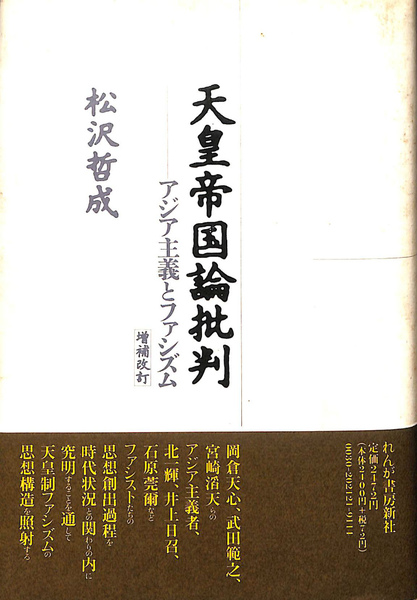 天皇帝国論批判
アジア主義とファシズム
増補改訂
松沢哲成
れんが書房新社
定価2472円
(本体2400円+税72円)
0030-201212-9114
岡倉天心、武田範之、
宮崎滔天らの
アジア主義者、
北一輝、井上日召、
石原莞爾など
ファシストたちの
思想創出過程を
時代状況との関わりの内に
究明することを通して
天皇制ファシズムの
思想構造を照射する